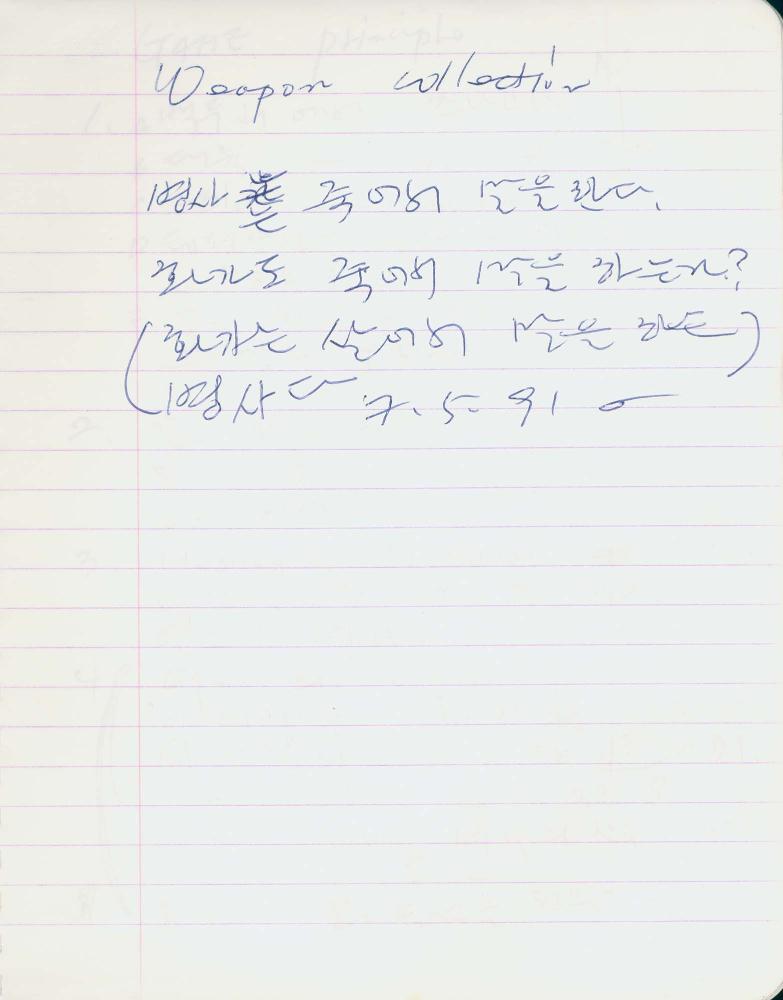 Weapon collection
명사는 죽어서 말을 한다.
화가도 죽어서 말을 하는가?
(화가는 살아서 말을 하는)
명사다 7. 5. 91